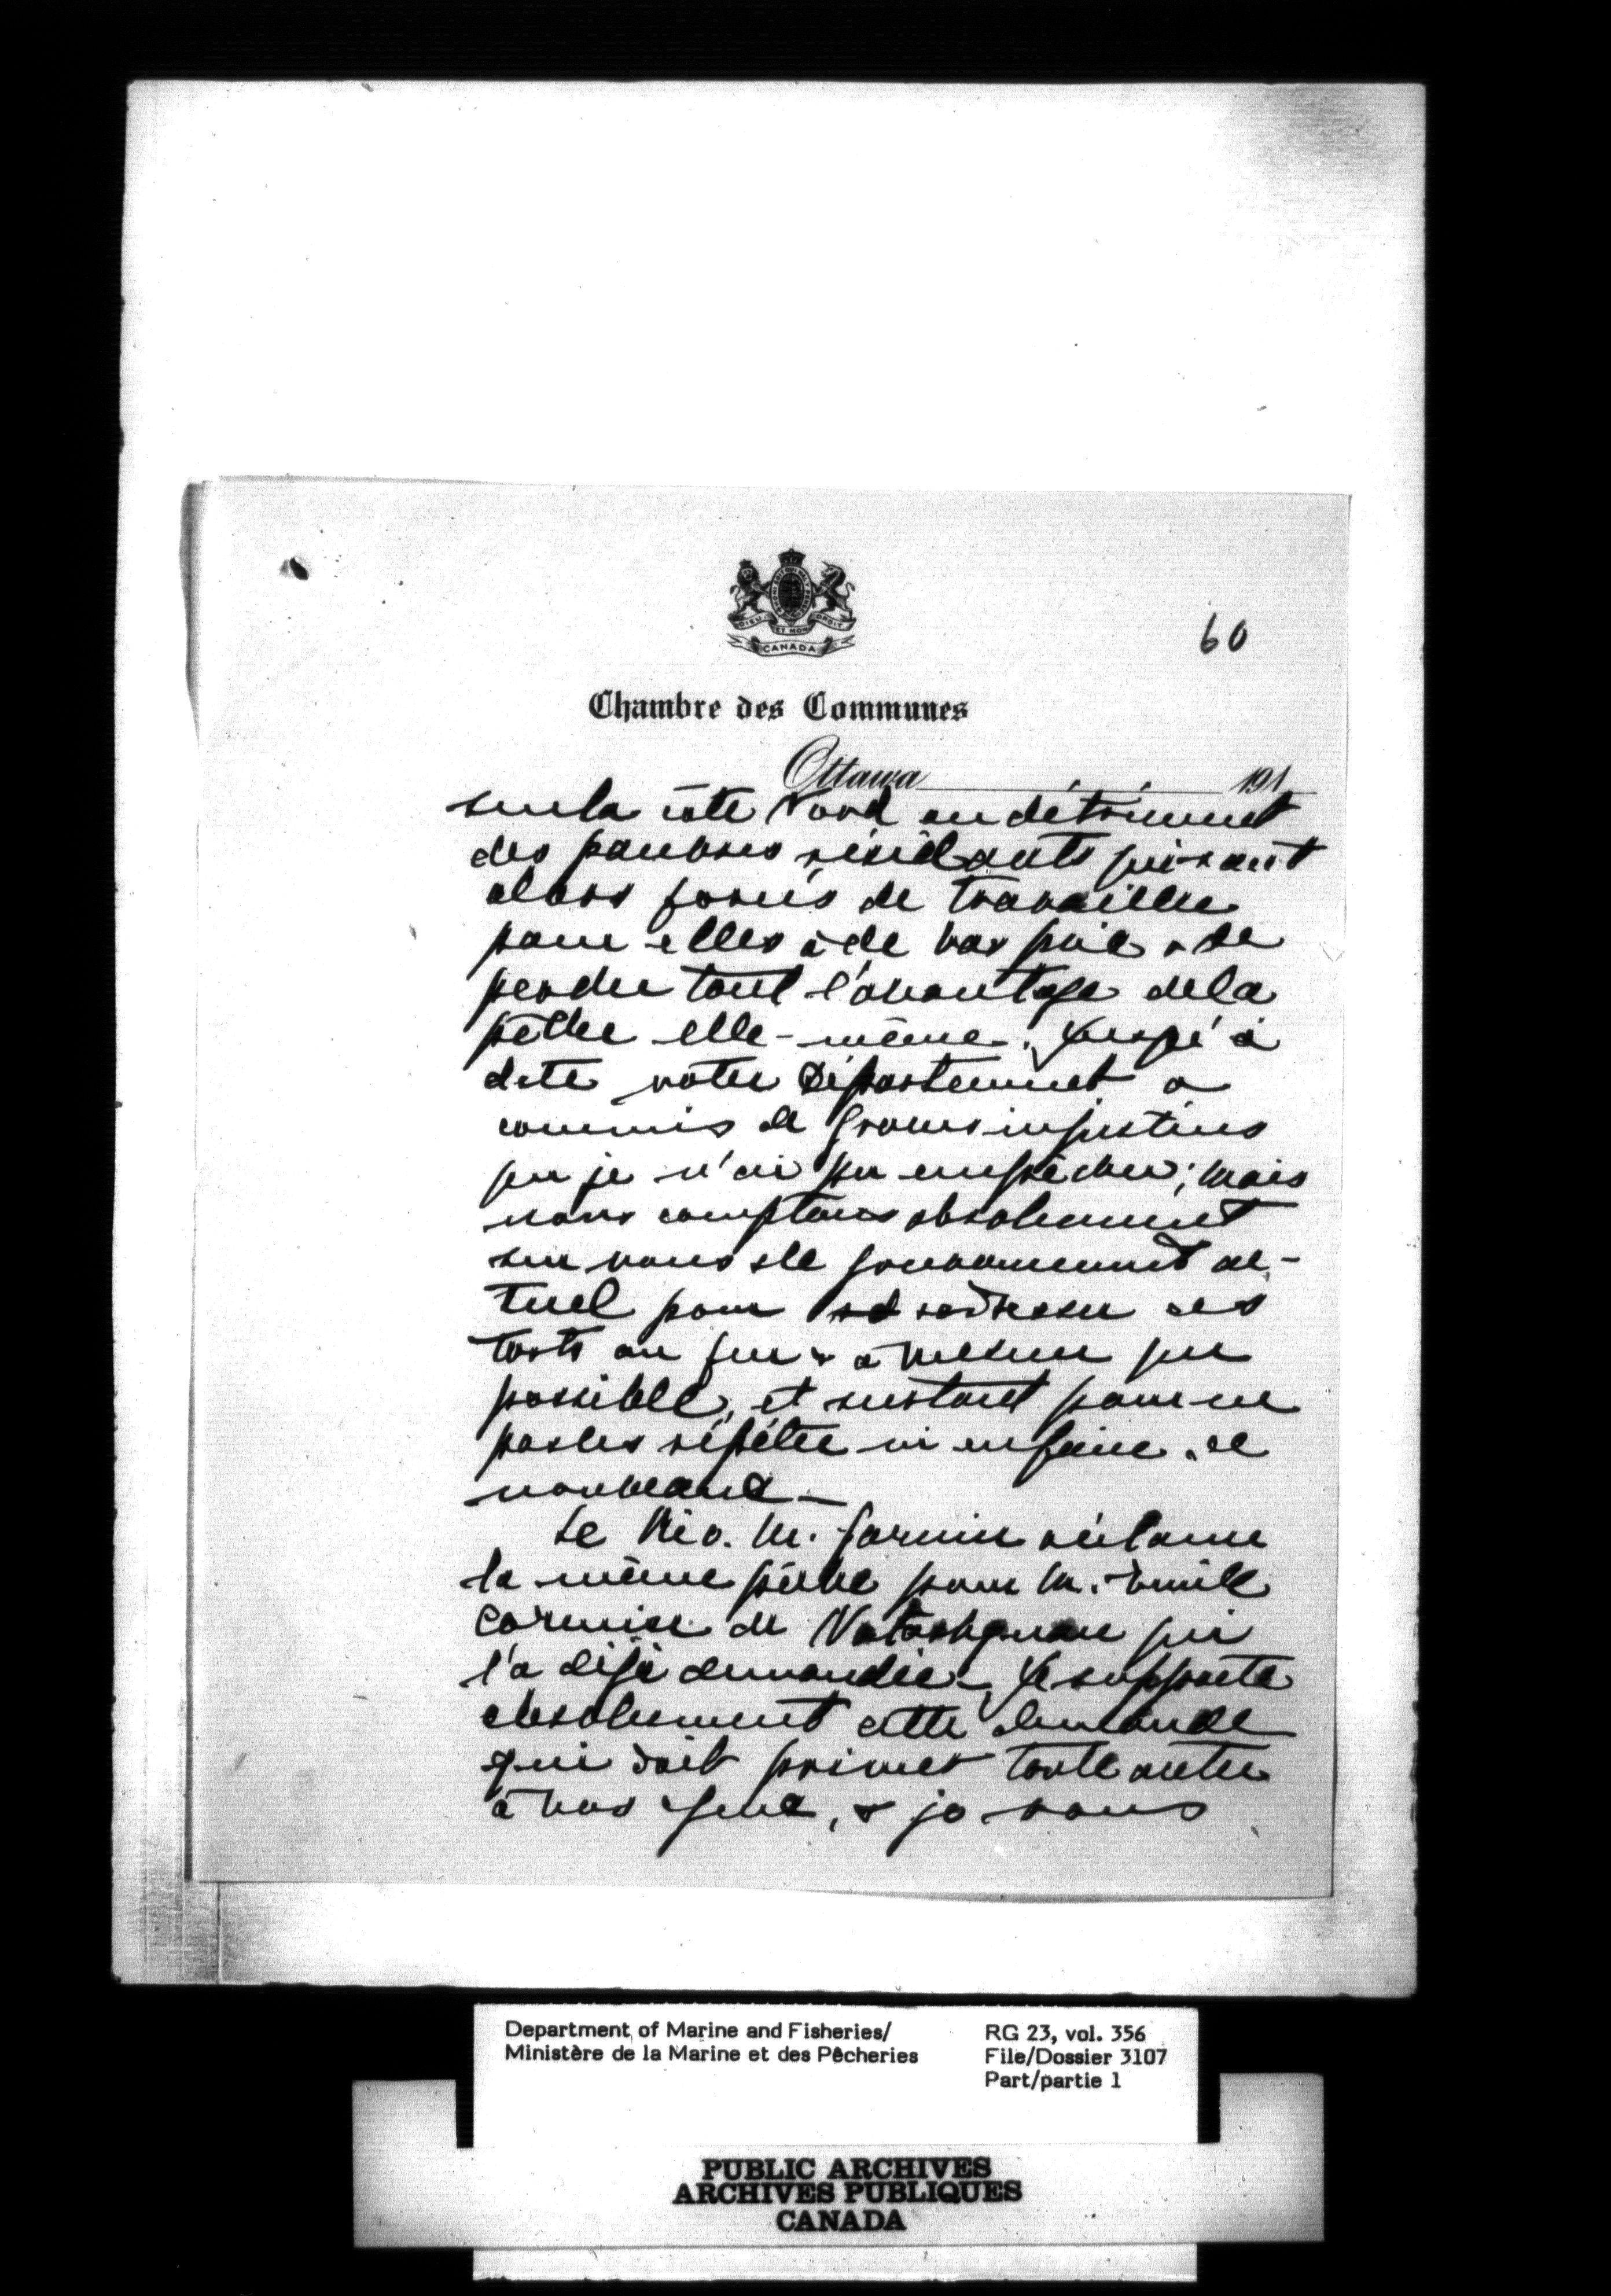 60
DIEU ET MON DROIT
CANADA
Chambre des Communes
Ottawa 191
sur la côte Nord au détriment
des pauvres résidants qui sont
alors forcés de travailler
pour elles à de bas prix & de
perdre tout l'avantage de la
pêche elle-même. Jusqu'à
date votre Département a
commis de graves injustices
que je n'ai pu empêcher; mais
nous comptons absolument
sur vous & le gouvernement ac-
tuel pour redresser ces
torts au fur & à mesure que
possible, et surtout pour ne
pas les répéter ni en faire de
nouveaux —
Le Rév. M. Garnier réclame
la même pêche pour M. Emile
Cormier de Natashquan qui
l'a déjà demandée. Je supporte
absolument cette demande
qui doit primer toute autre
à nos yeux, & je vous
Department of Marine and Fisheries/
Ministère de la Marine et des Pêcheries
RG 23, vol. 356
File/Dossier 3107
Part/partie 1
PUBLIC ARCHIVES
ARCHIVES PUBLIQUES
CANADA